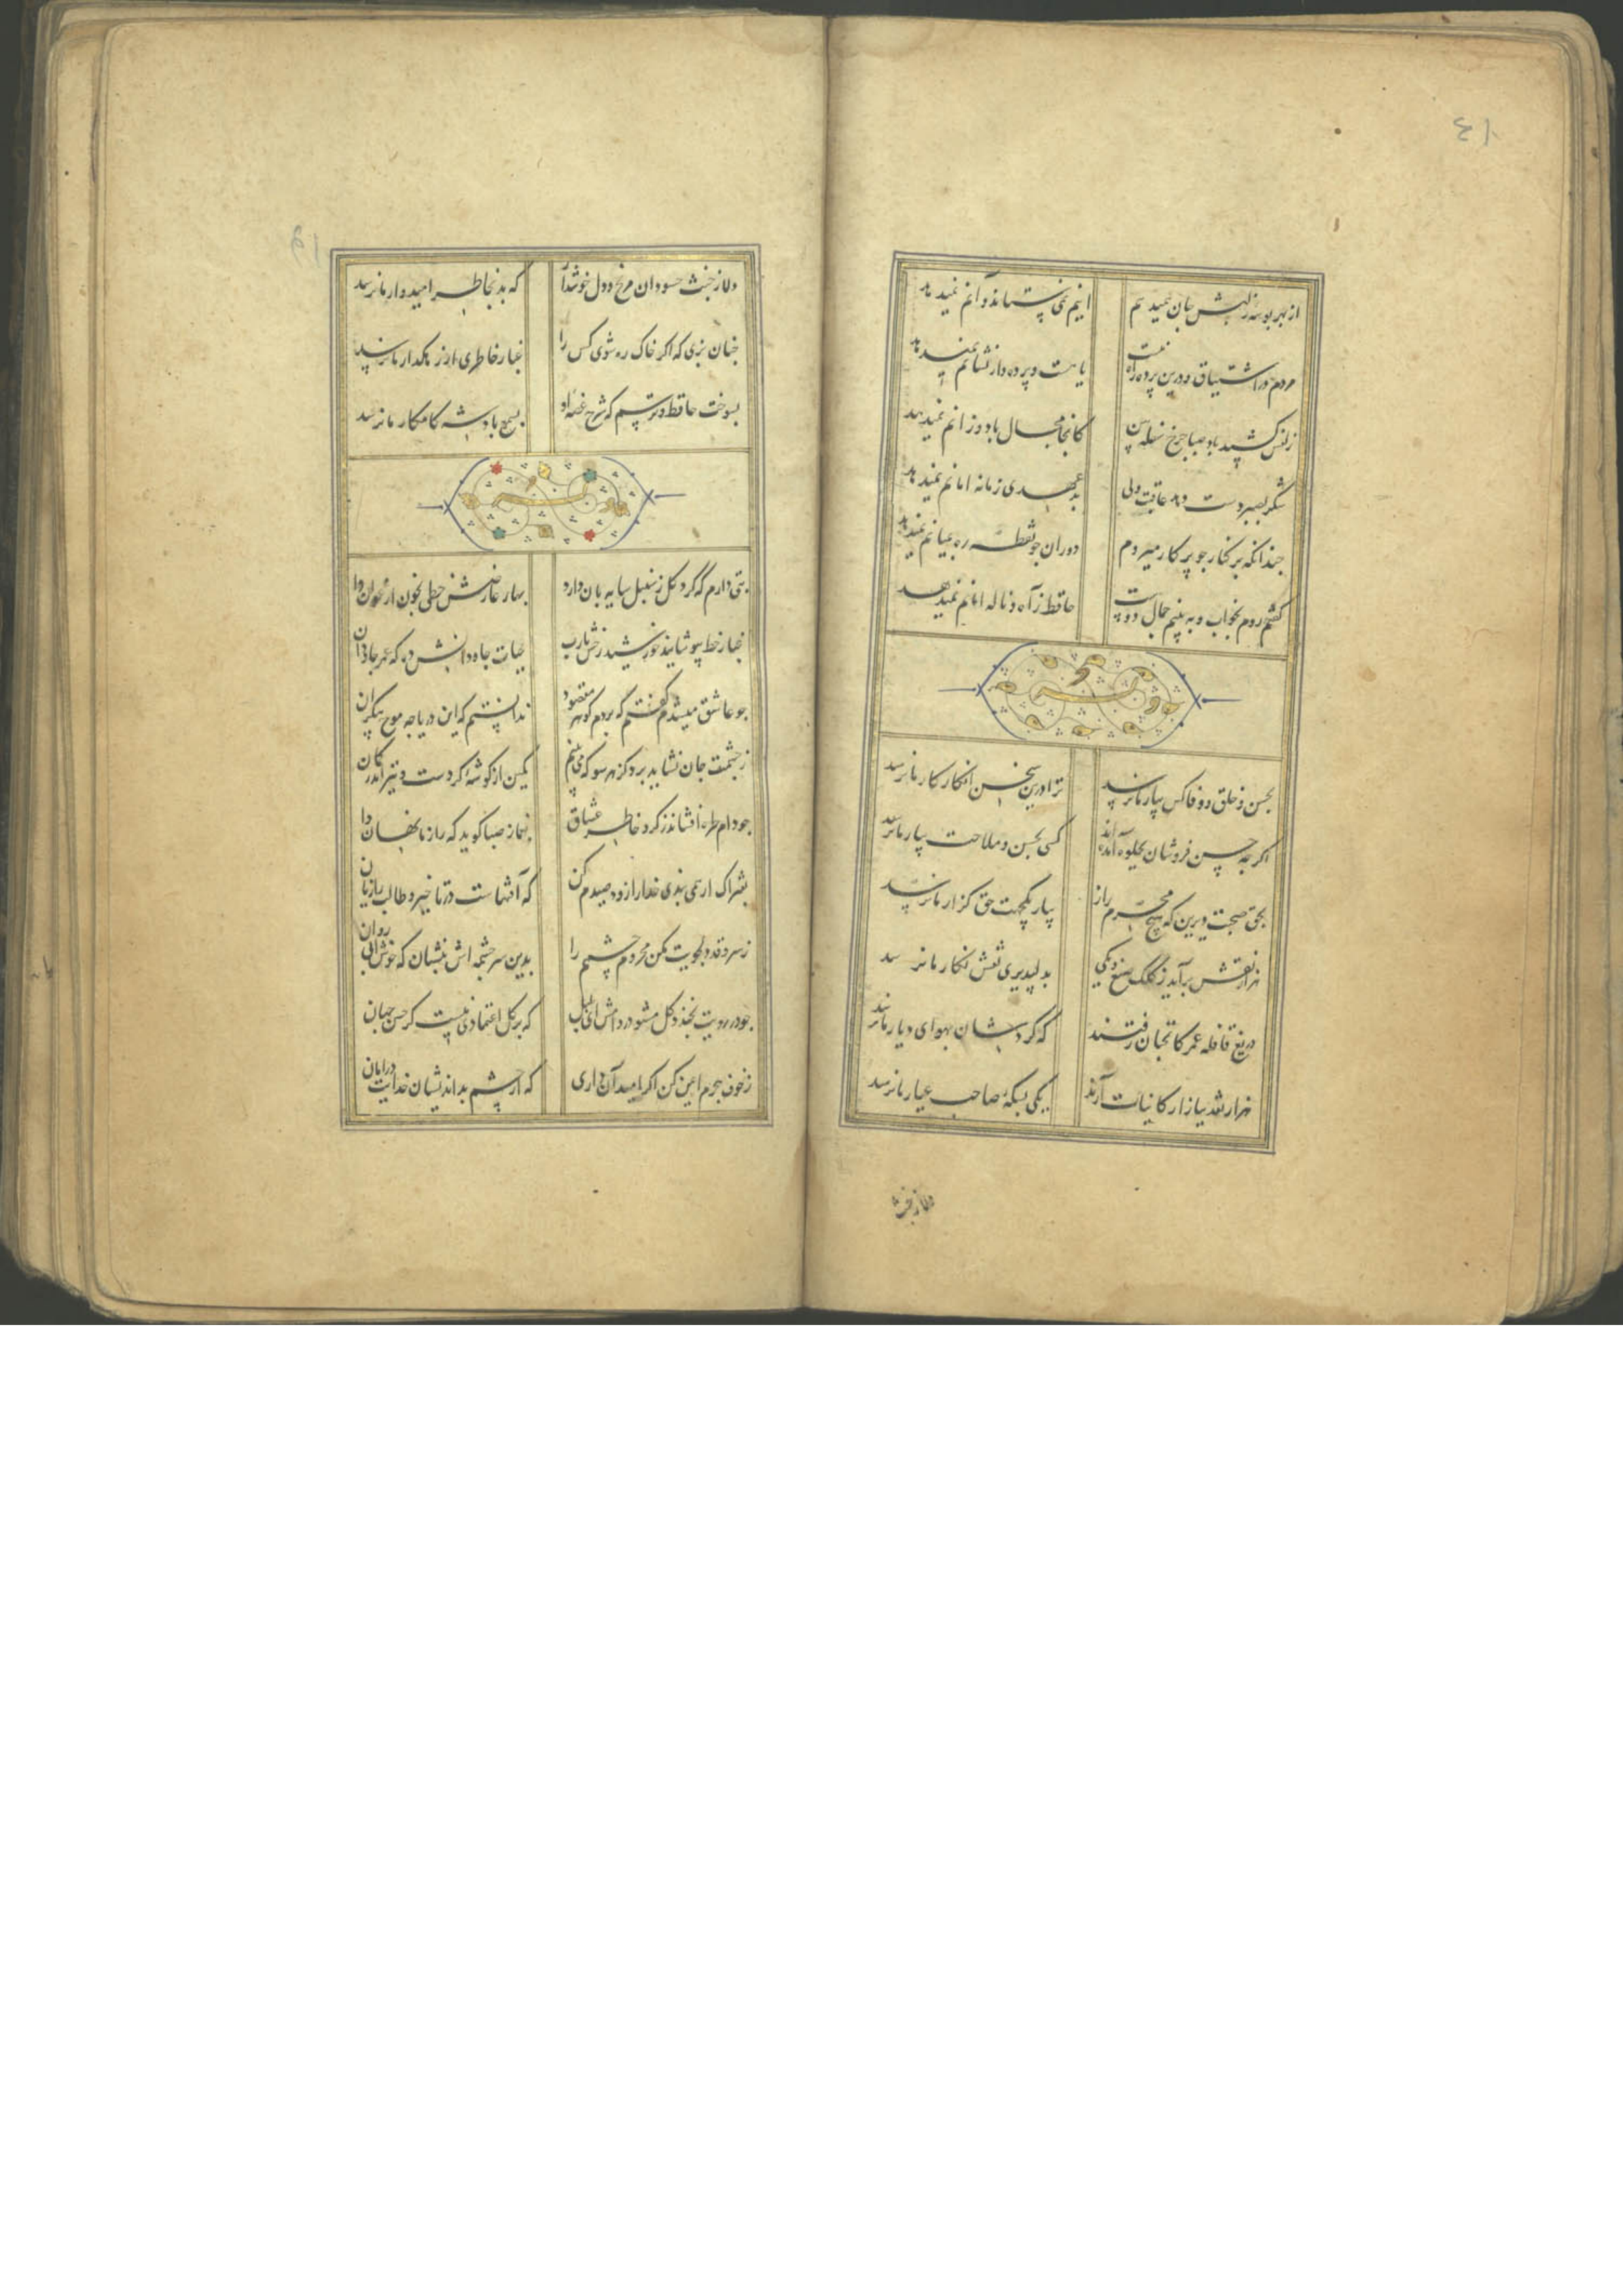 از بهر بوسهٔ ز لبش جان همیدهم اینم نمی ستاند و آنم نمیدهد
مردم در اشتیاق و درین پرده راه نیست یا هست و پرده دار نشانم نمیدهد
زلفش کشید باد صبا چرخ سفله بین کانجا مجال باد وزانم نمیدهد
شکر بصبر دست دهد عاقبت ولی بدعهدی زمانه امانم نمیدهد
چندانکه بر کنار چو پرکار میروم دوران چو نقطه ره بمیانم نمیدهد
گفتم روم بخواب و به بینم جمال دوست حافظ ز آه و ناله امانم نمیدهد
بحسن و خلق و وفا کس بیار ما نرسد ترا درین سخن انکار کار ما نرسد
اگرچه حسن فروشان بجلوه آمده اند کسی بحسن و ملاحت بیار ما نرسد
بحق صحبت دیرین که هیچ محرم راز بیار یکجهت حق گزار ما نرسد
هزار نقش برآید ز کلک صنع و یکی بدلپذیری نقش نگار ما نرسد
دریغ قافله عمر کانچنان رفتند که گردشان بهوای دیار ما نرسد
هزار نقد ببازار کاینات آرند یکی بسکه صاحب عیار ما نرسد
دلا ز خبث
دلا ز خبث حسودان مرنج و دل خوشدار که بد بخاطر امیدوار ما نرسد
چنان بزی که اگر خاک ره شوی کس را غبار خاطری از رهگذار ما نرسد
بسوخت حافظ و ترسم که شرح غصه او بسمع پادشه کامکار ما نرسد
بتی دارم که گرد گل ز سنبل سایه بان دارد بهار عارضش خطی بخون ارغوان دارد
غبار خط بپوشانید خورشید رخش یارب حیات جاودانش ده که عمر جاودان
چو عاشق میشدم گفتم که بردم گوهر مقصود ندانستم که این دریا چه موج بیکران
ز چشمت جان نشاید برد کز هر سو که می بینم کمین از گوشهٔ کردست و تیر اندر کمان
چو دام طره افشاند ز گرد خاطر عشاق بغماز صبا گوید که راز ما نهان دا
بفتراک ار همی بندی خدا را زود صیدم کن که آفتهاست در تاخیر و طالب را زیان
ز سرو قد دلجویت مکن محروم چشمم را بدین سرچشمه اش بنشان که خوش آبی روان
چو در رویت بخندد گل مشو در دامش ای بلبل که بر گل اعتمادی نیست گر حسن جهان
ز خوف هجرم ایمن کن اگر امید آن داری که از چشم بد اندیشان خدایت در امان